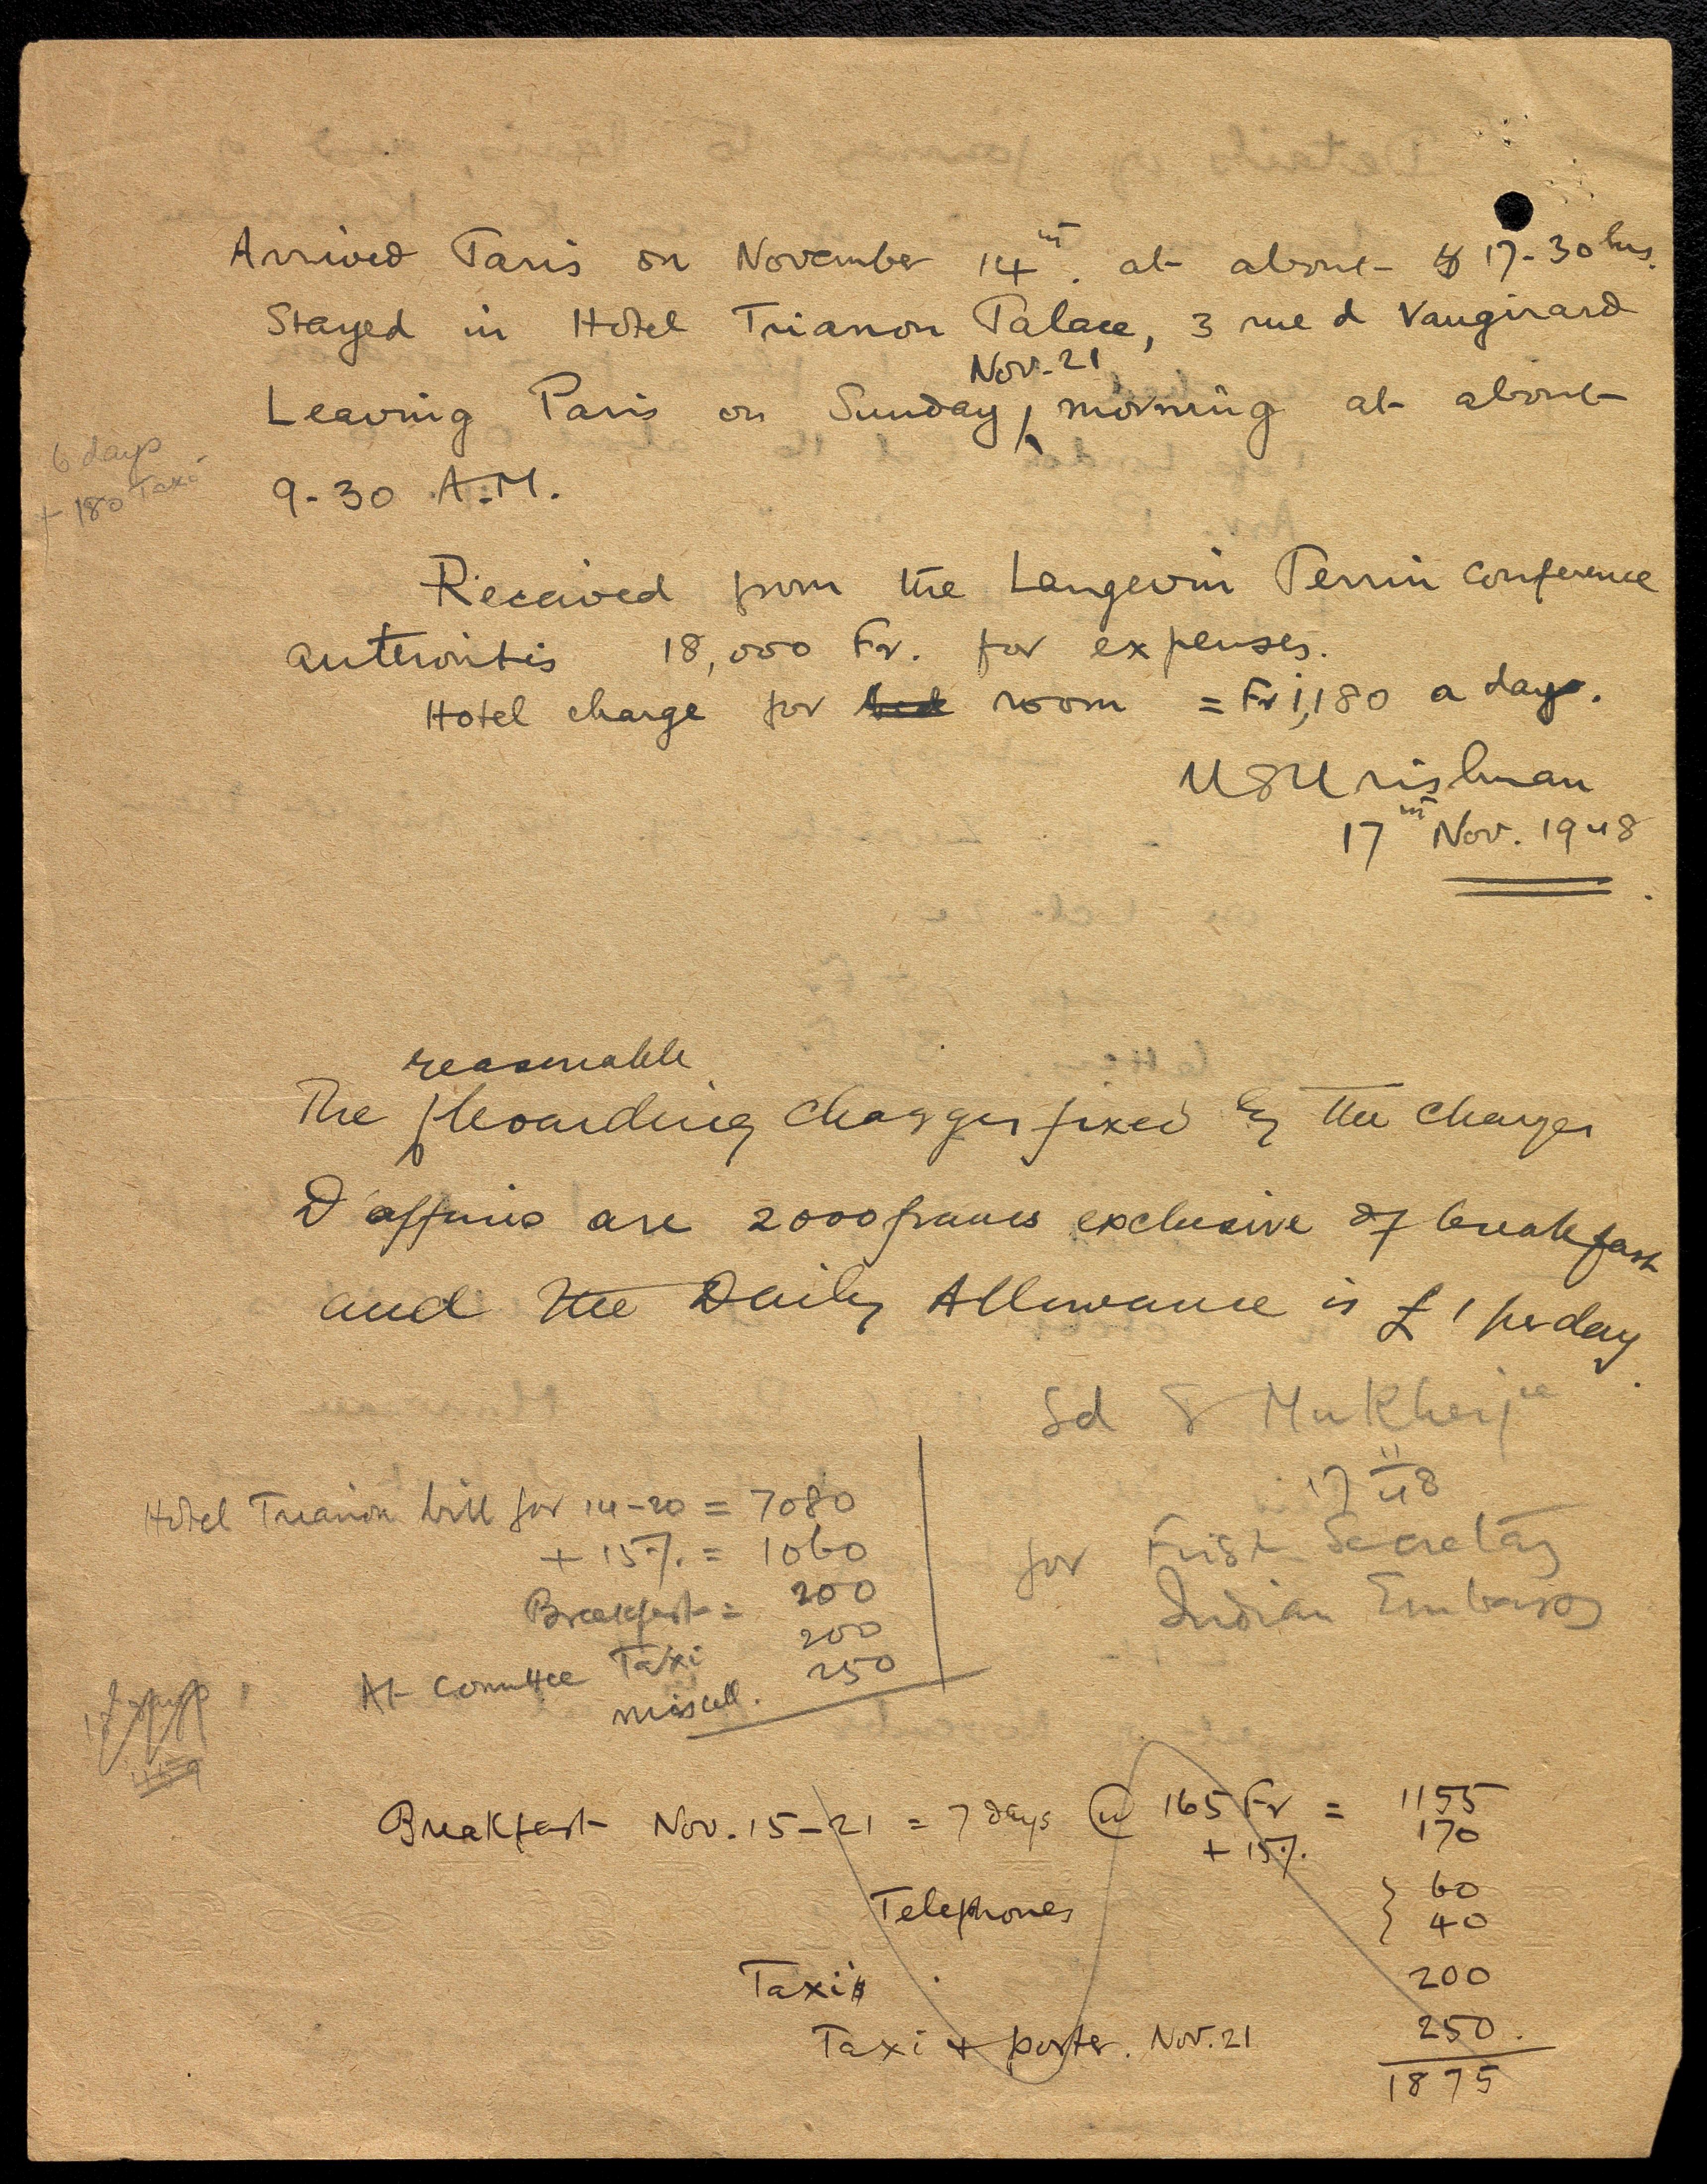 Arrived Paris on November 14th. at about 17-30 hrs.
Stayed in Hotel Trianon Palace, 3 rue d Vaugirard
Nov. 21
Leaving Paris on Sunday, morning at about
9-30 A.M.
6 days
+ 180 Taxi
Received from the Langevin Perrin conference
autorities 18,000 Fr. for expenses.
Hotel charge for bed room = Fr 1,180 a day.
KSKrishnan
17th Nov. 1948
reasonable
The boarding charges fixed by the Charges
D'affairs are 2000 francs exclusive of breakfast
and the Daily Allowance is £ 1 per day.
Sd S Mukherjee
17 11 48
for First Secretary
Indian Embassy
Hotel Trianon bill for 14-20 = 7080
+ 15% = 1060
Breakfast = 200
At Comittee Taxi 200
miscell. 250
Breakfast Nov. 15-21 = 7 days @ 165 Fr = 1155
+ 15% 170
Telephones } 60
40
Taxi 200
Taxi + porter. Nov. 21 250.
1875